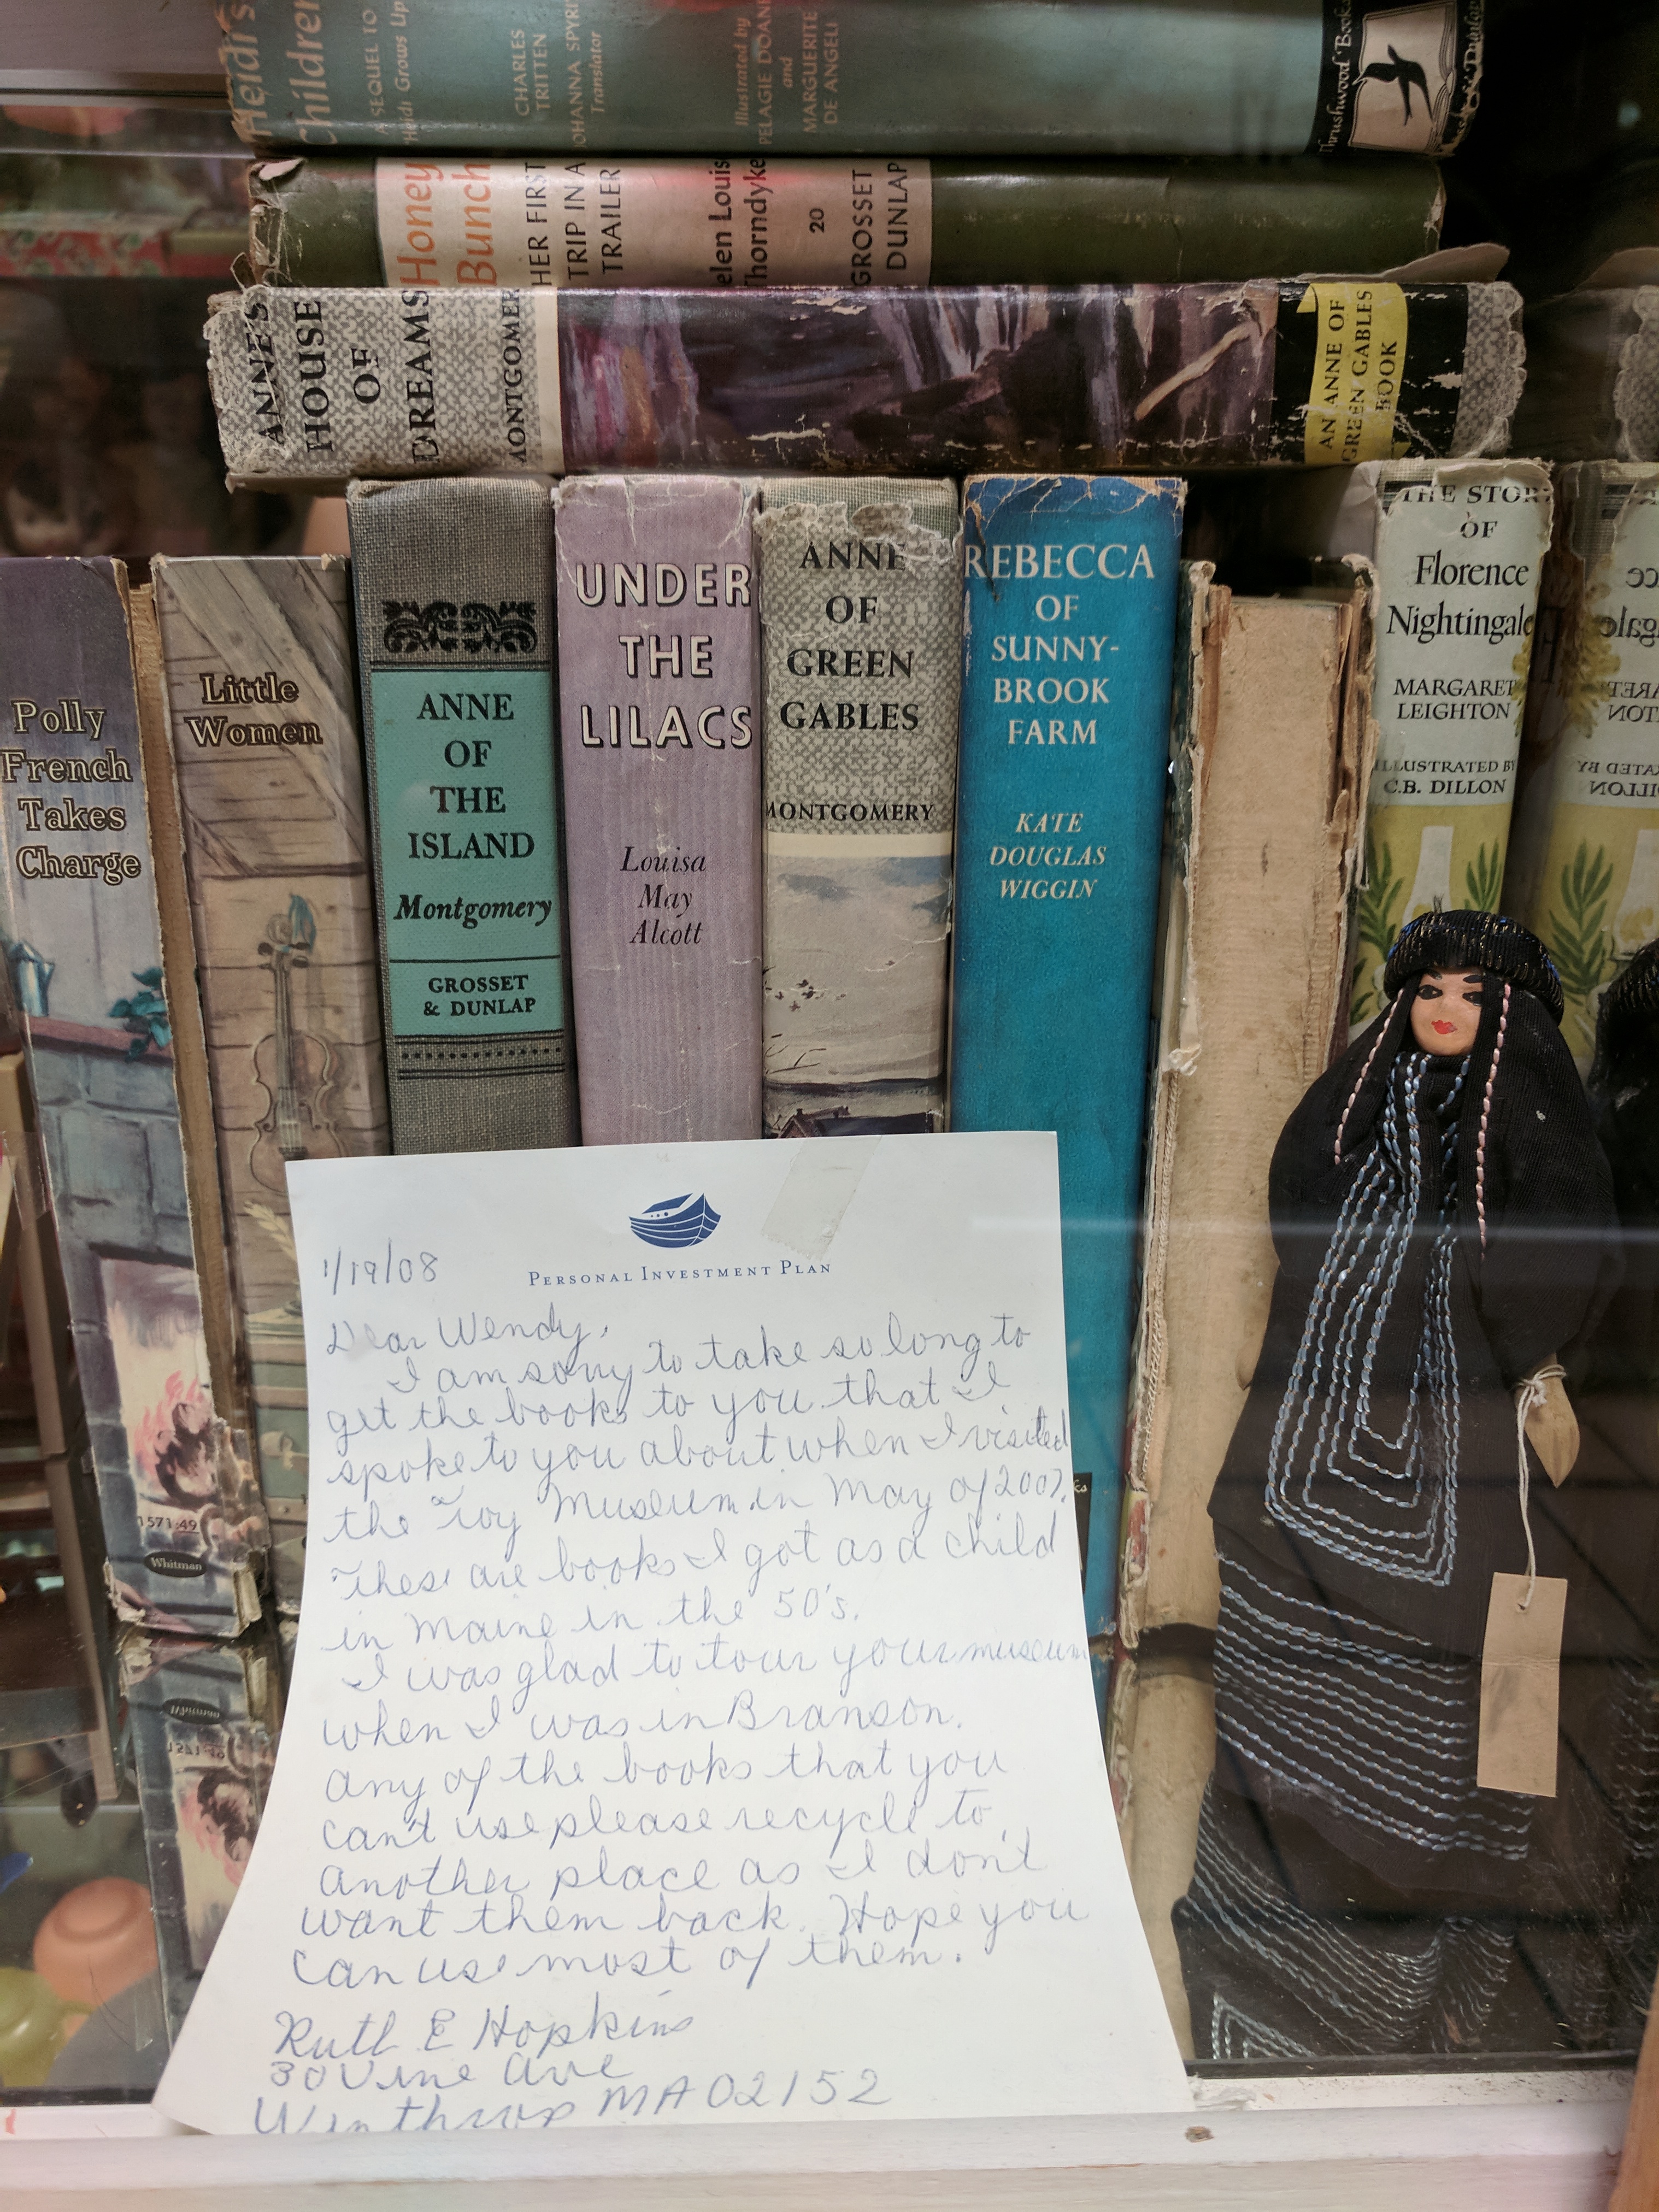 Heidi's
Children
A SEQUEL TO
Heidi Grows Up
CHARLES
TRITTEN
JOHANNA SPYRI
Translator
Illustrated by
PELAGIE DOANE
and
MARGUERITE
DE ANGELI
Thrushwood Books
Honey
Bunch
HER FIRST
TRIP IN A
TRAILER
elen Louis
Thorndyke
20
GROSSET
DUNLAP
ANNE'S
HOUSE
OF
DREAMS
MONTGOMER
AN ANNE OF
GREEN GABLES
BOOK
Polly
French
Takes
Charge
1571:49
Whitman
Little
Women
ANNE
OF
THE
ISLAND
Montgomery
GROSSET
& DUNLAP
UNDER
THE
LILACS
Louisa
May
Alcott
ANNE
OF
GREEN
GABLES
MONTGOMERY
REBECCA
OF
SUNNY-
BROOK
FARM
KATE
DOUGLAS
WIGGIN
THE STORY
OF
Florence
Nightingale
MARGARET
LEIGHTON
ILLUSTRATED BY
C.B. DILLON
PERSONAL INVESTMENT PLAN
1/19/08
Dear Wendy,
I am sorry to take so long to
get the books to you that I
spoke to you about when I visited
the Toy Museum in May of 2007.
These are books I got as a child
in Maine in the 50's.
I was glad to tour your museum
when I was in Branson.
Any of the books that you
can't use please recycle to
another place as I don't
want them back. Hope you
can use most of them.
Ruth E Hopkins
30 Vine Ave
Winthrop MA 02152